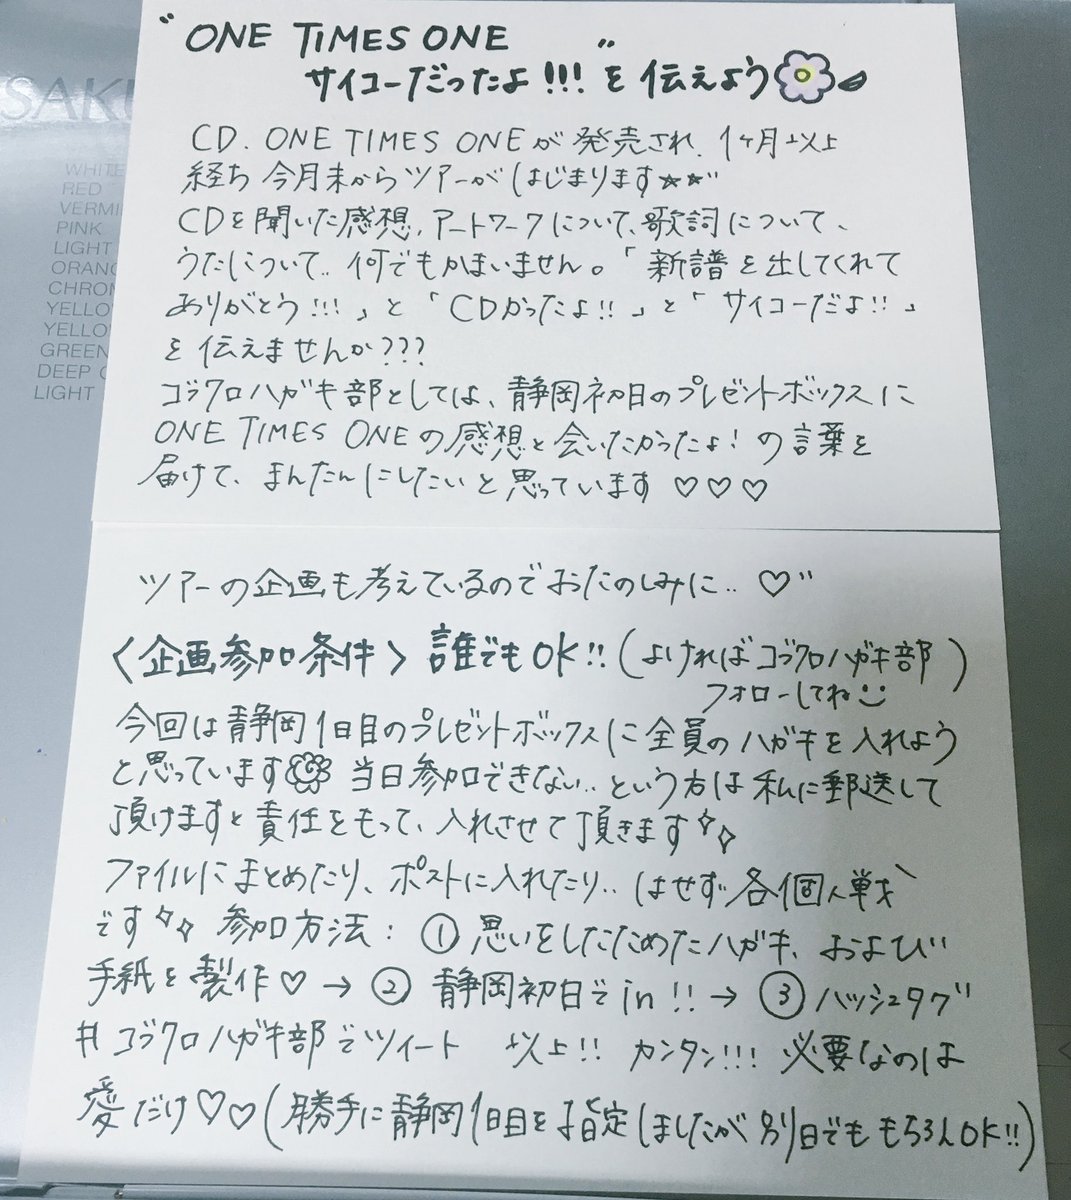 "ONE TIMES ONE
サイコーだったよ!!!"を伝えよう
CD. ONE TIMES ONEが発売され、1ヶ月以上
経ち 今月末からツアーがはじまります★★"
CDを聞いた感想、アートワークについて、歌詞について、
うたについて‥何でもかまいません。「新譜を出してくれて
ありがとう!!!」と「CDかったよ!!」と「サイコーだよ!!」
を伝えませんか???
コブクロハガキ部としては、静岡初日のプレゼントボックスに
ONE TIMES ONEの感想と会いたかったよ!の言葉を
届けて、まんたんにしたいと思っています♡♡♡
ツアーの企画も考えているのでおたのしみに‥♡"
〈企画参加条件〉誰でもOK!!(よければコブクロハガキ部)
フォローしてね
今回は静岡1日目のプレゼントボックスに全員のハガキを入れよう
と思っています 当日参加できない‥という方は私に郵送して
頂けますと責任をもって、入れさせて頂きます
ファイルにまとめたり、ポストに入れたり‥はせず各個人戦
です 参加方法:①思いをしたためたハガキ、および
手紙を製作♡→②静岡初日でin!!→③ハッシュタグ
#コブクロハガキ部でツイート 以上!! カンタン!!! 必要なのは
愛だけ♡♡(勝手に静岡1日目を指定しましたが別日でももちろんOK!!)
SAKU
WHITE
RED
VERMI
PINK
LIGHT
ORANG
CHRON
YELLO
YELLO
GREEN
DEEP
LIGHT